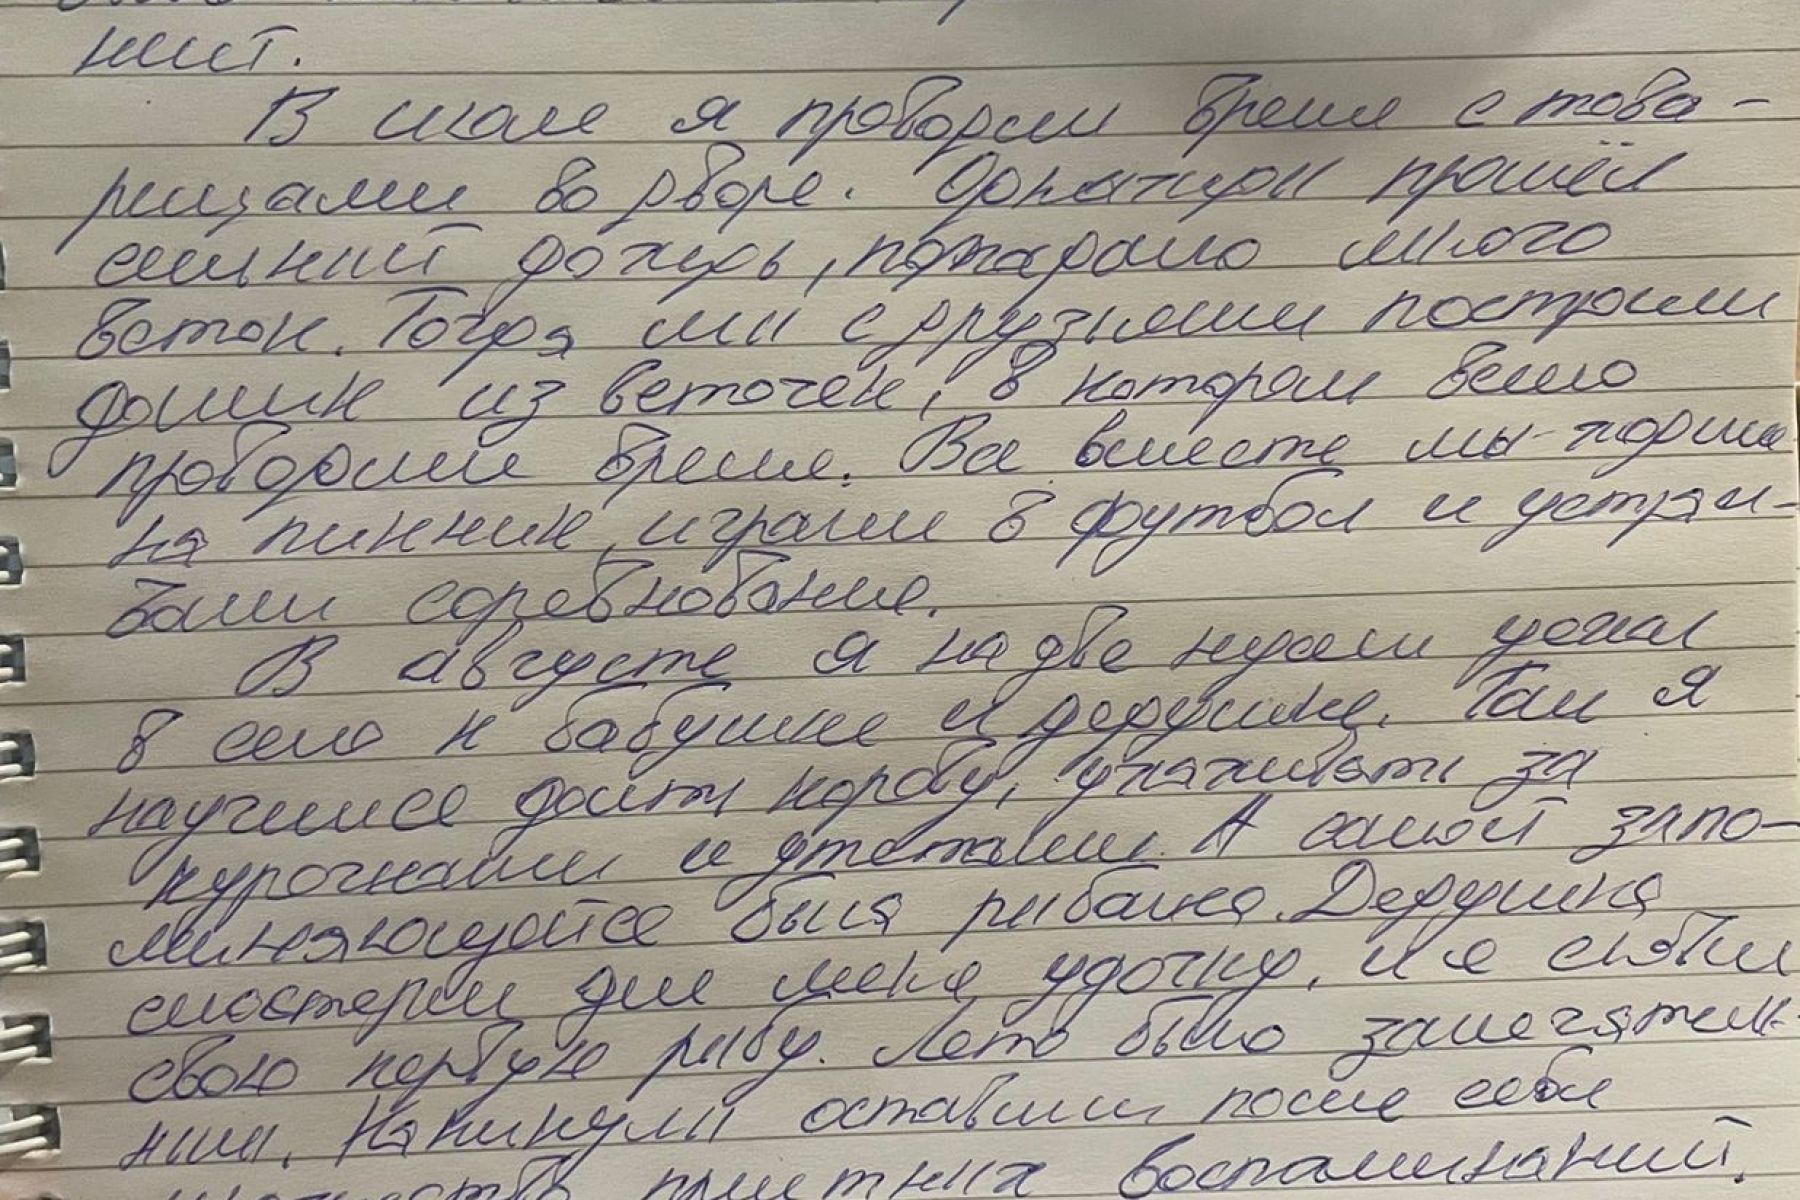 ний.
В июле я проводил время с това-
рищами во дворе. Однажды прошёл
сильный дождь, попадало много
веток. Тогда мы с друзьями построили
домик из веточек, в котором весело
проводили время. Все вместе мы ходили
на пикник, играли в футбол и устраи-
вали соревнования.
В августе я на две недели уехал
в село к бабушке и дедушке. Там я
научился доить корову, ухаживать за
курочками и утятами. А самой запо-
минающейся была рыбалка. Дедушка
смастерил для меня удочку, и я словил
свою первую рыбу. Лето было замечатель-
ным. Каникулы оставили после себя
множество приятных воспоминаний.